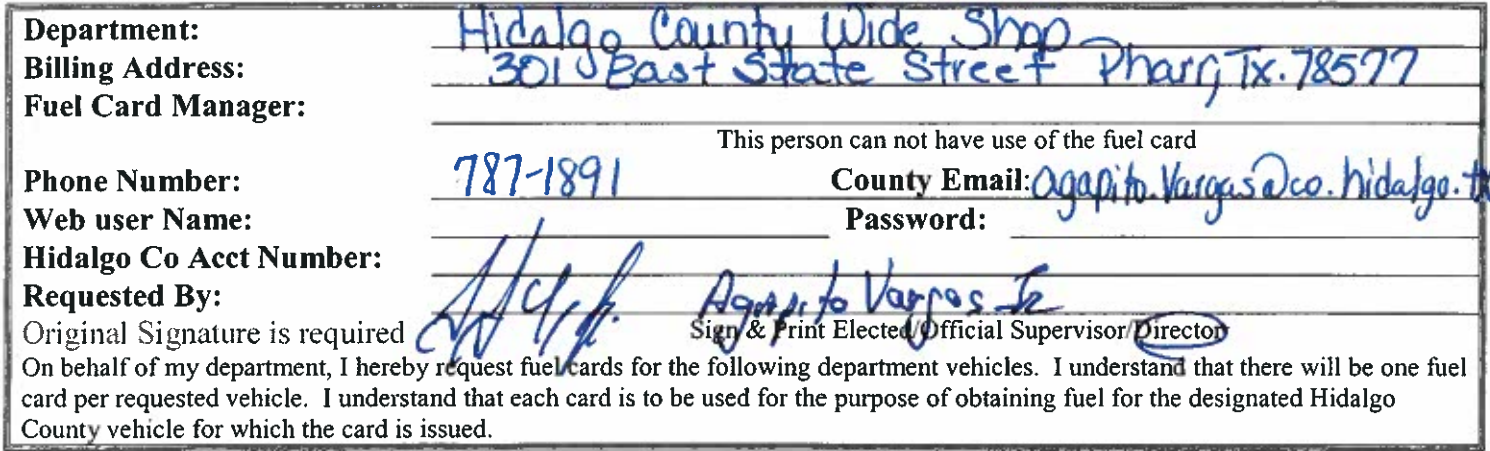 Department: Hidalgo County Wide Shop
Billing Address: 301 East State Street Pharr, Tx. 78577
Fuel Card Manager:
This person can not have use of the fuel card
Phone Number: 787-1891 County Email: agapito.Vargas@co.hidalgo.tx
Web user Name: Password:
Hidalgo Co Acct Number:
Requested By: Agapito Vargas Jr
Original Signature is required Sign & Print Elected/Official Supervisor/Director
On behalf of my department, I hereby request fuel cards for the following department vehicles. I understand that there will be one fuel
card per requested vehicle. I understand that each card is to be used for the purpose of obtaining fuel for the designated Hidalgo
County vehicle for which the card is issued.